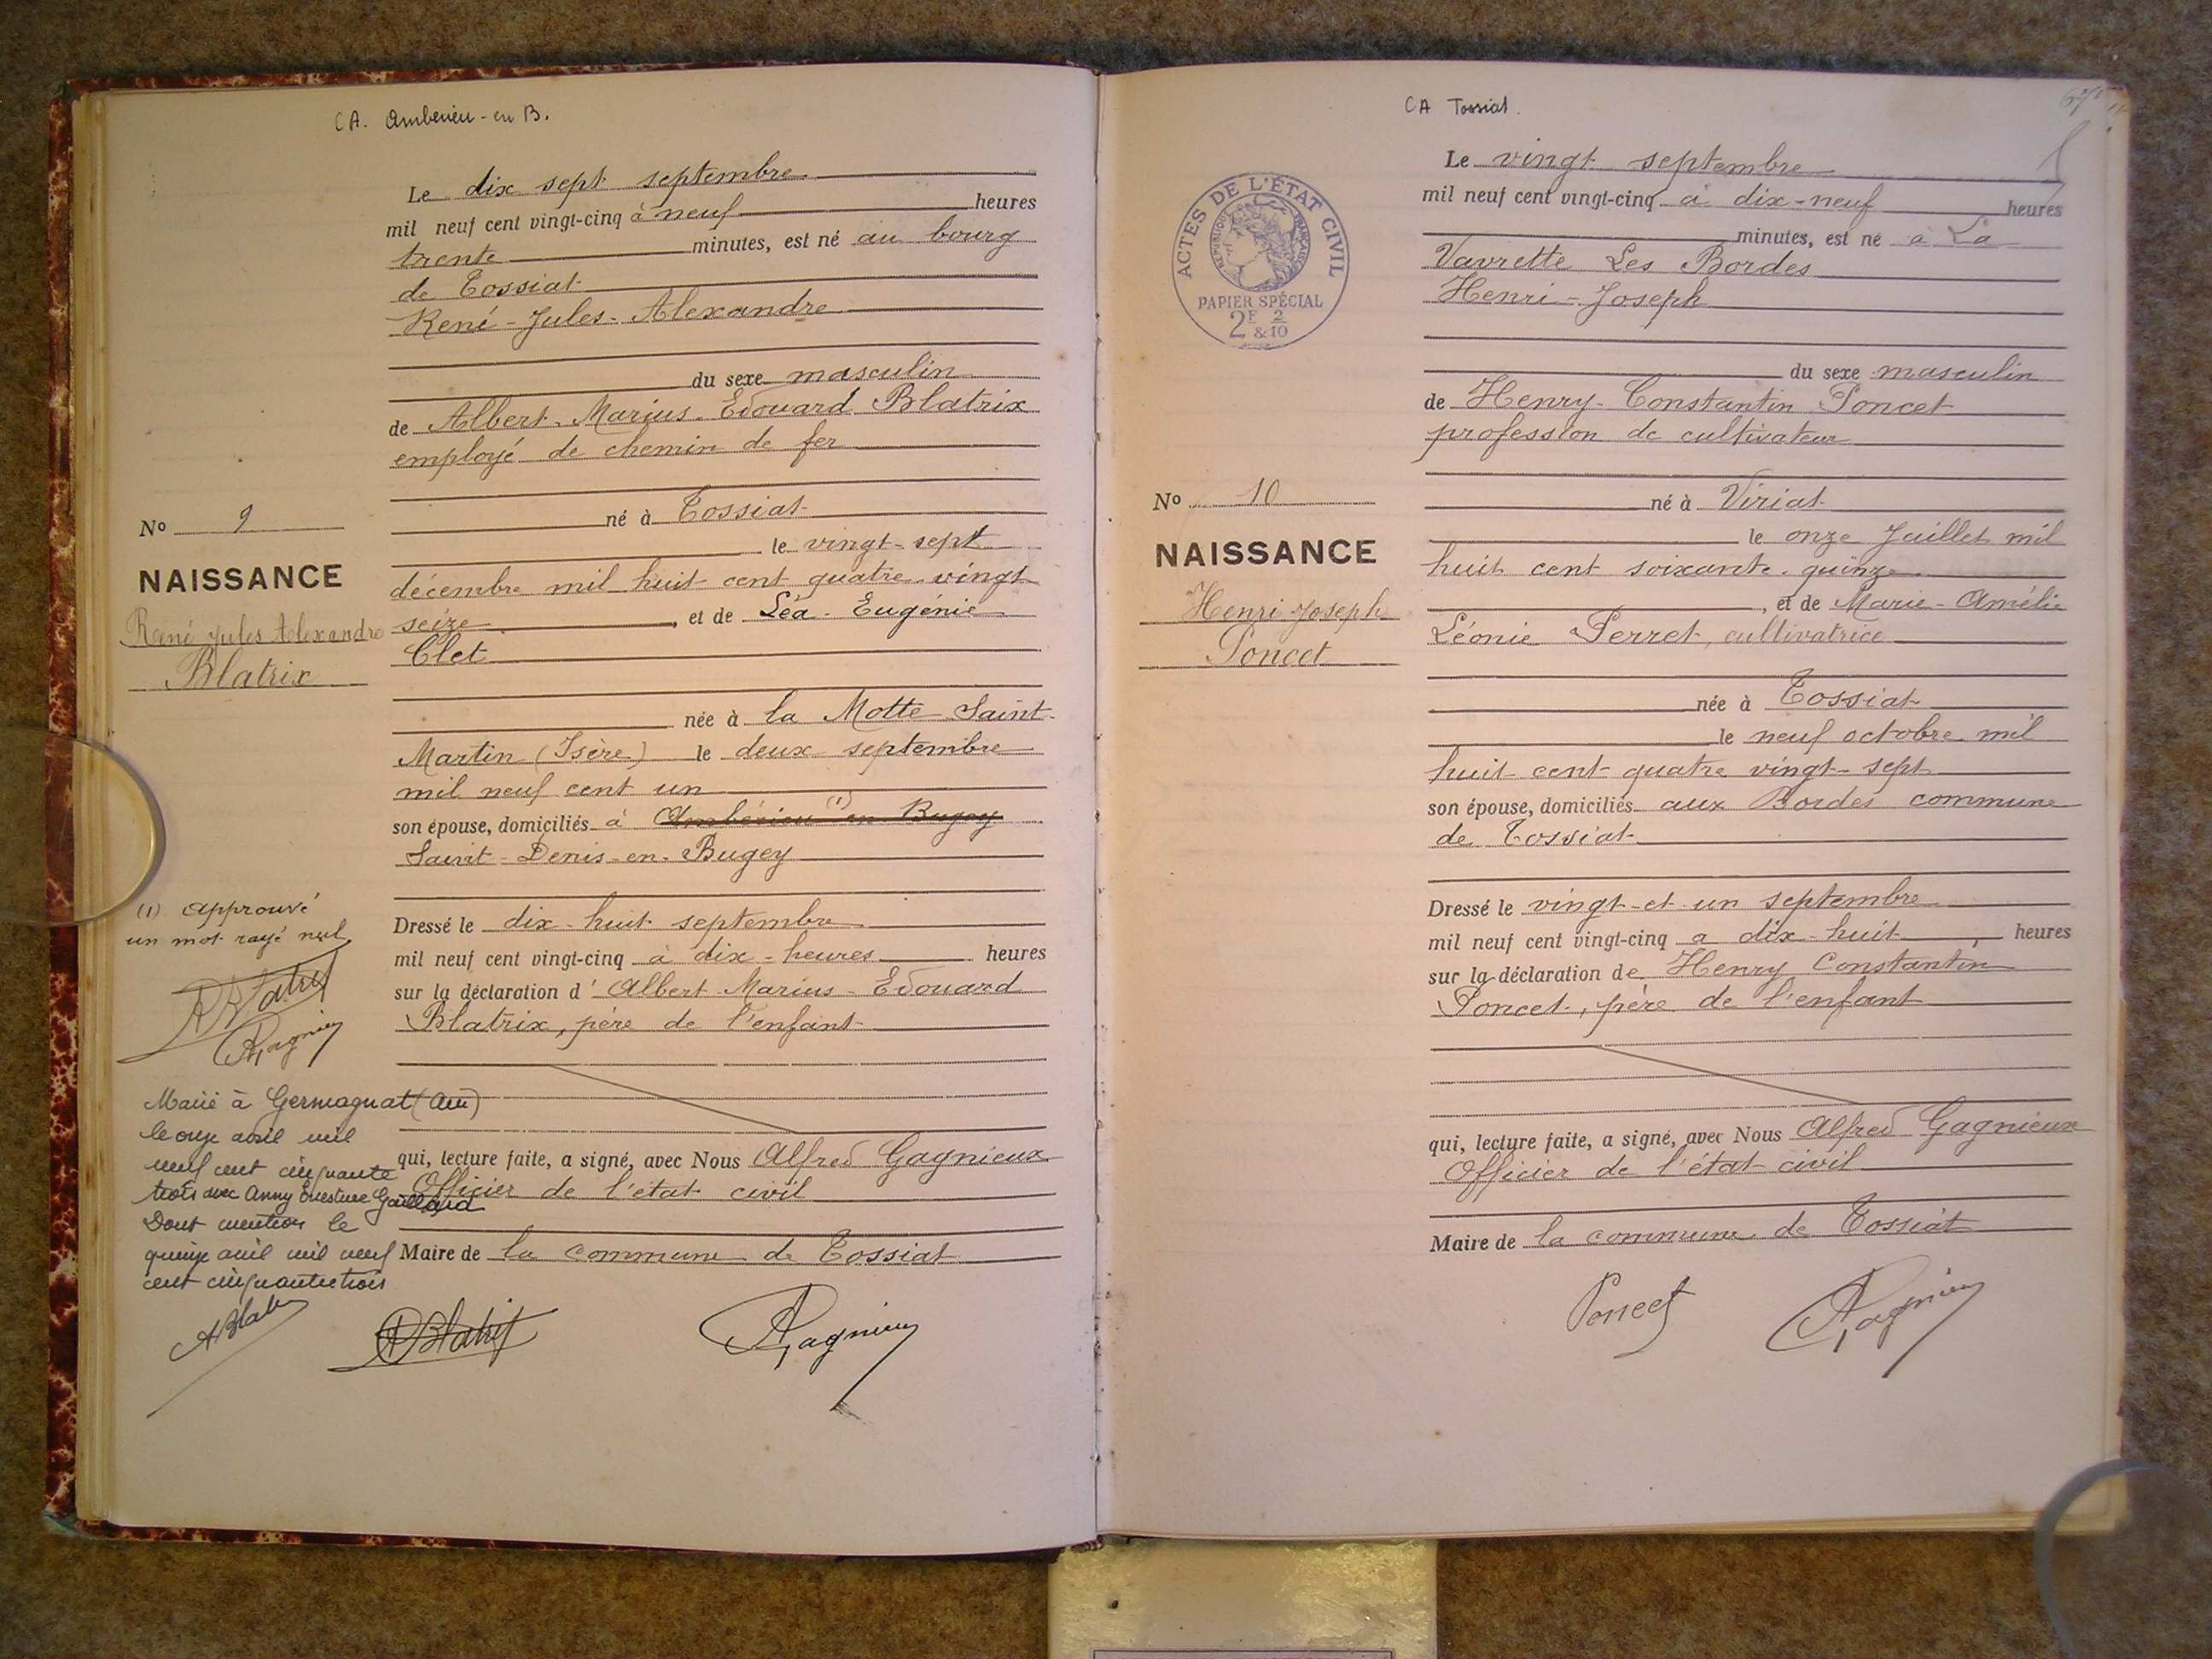 CA. Ambérieu-en B.
Le dix sept septembre
mil neuf cent vingt-cinq à neuf heures
trente minutes, est né au bourg
de Tossiat
René-Jules-Alexandre
du sexe masculin
de Albert-Marius-Edouard Blatrix
employé de chemin de fer
né à Tossiat
le vingt-sept
décembre mil huit cent quatre-vingt
seize, et de Léa-Eugénie
Clet
née à la Motte Saint-
Martin (Isère) le deux septembre
mil neuf cent un
son épouse, domiciliés à Ambérieu (1) en Bugey
Saint-Denis-en-Bugey
Dressé le dix-huit septembre
mil neuf cent vingt-cinq à dix-heures heures
sur la déclaration d'Albert-Marius-Edouard
Blatrix, père de l'enfant
qui, lecture faite, a signé, avec Nous Alfred Gagnieux
Officier de l'état civil
Maire de la commune de Tossiat
ABlatrix
AGagnieux
No 9
NAISSANCE
René Jules Alexandre
Blatrix
(1) approuvé
un mot rayé nul
ABlatrix
AGagnieux
Marié à Germagnat (Ain)
le onze avril mil
neuf cent cinquante
trois avec Anny Ernestine Gaillard
Dont mention le
quinze avril mil neuf
cent cinquante trois
CA Tossiat.
Le vingt septembre
mil neuf cent vingt-cinq à dix-neuf heures
minutes, est né à La
Vavrette Les Bordes
Henri-Joseph
du sexe masculin
de Henry-Constantin Poncet
profession de cultivateur
né à Viriat
le onze Juillet mil
huit cent soixante-quinze
, et de Marie-Amélie
Léonie Perret, cultivatrice
née à Tossiat
le neuf octobre mil
huit cent quatre vingt-sept
son épouse, domiciliés aux Bordes commune
de Tossiat
Dressé le vingt-et-un septembre
mil neuf cent vingt-cinq a dix-huit heures
sur la déclaration de Henry Constantin
Poncet, père de l'enfant
qui, lecture faite, a signé, avec Nous Alfred Gagnieux
Officier de l'état civil
Maire de la commune de Tossiat
Poncet
AGagnieux
ACTES DE L'ÉTAT CIVIL
RÉPUBLIQUE FRANÇAISE
PAPIER SPÉCIAL
2F 2
&10
No 10
NAISSANCE
Henri-Joseph
Poncet